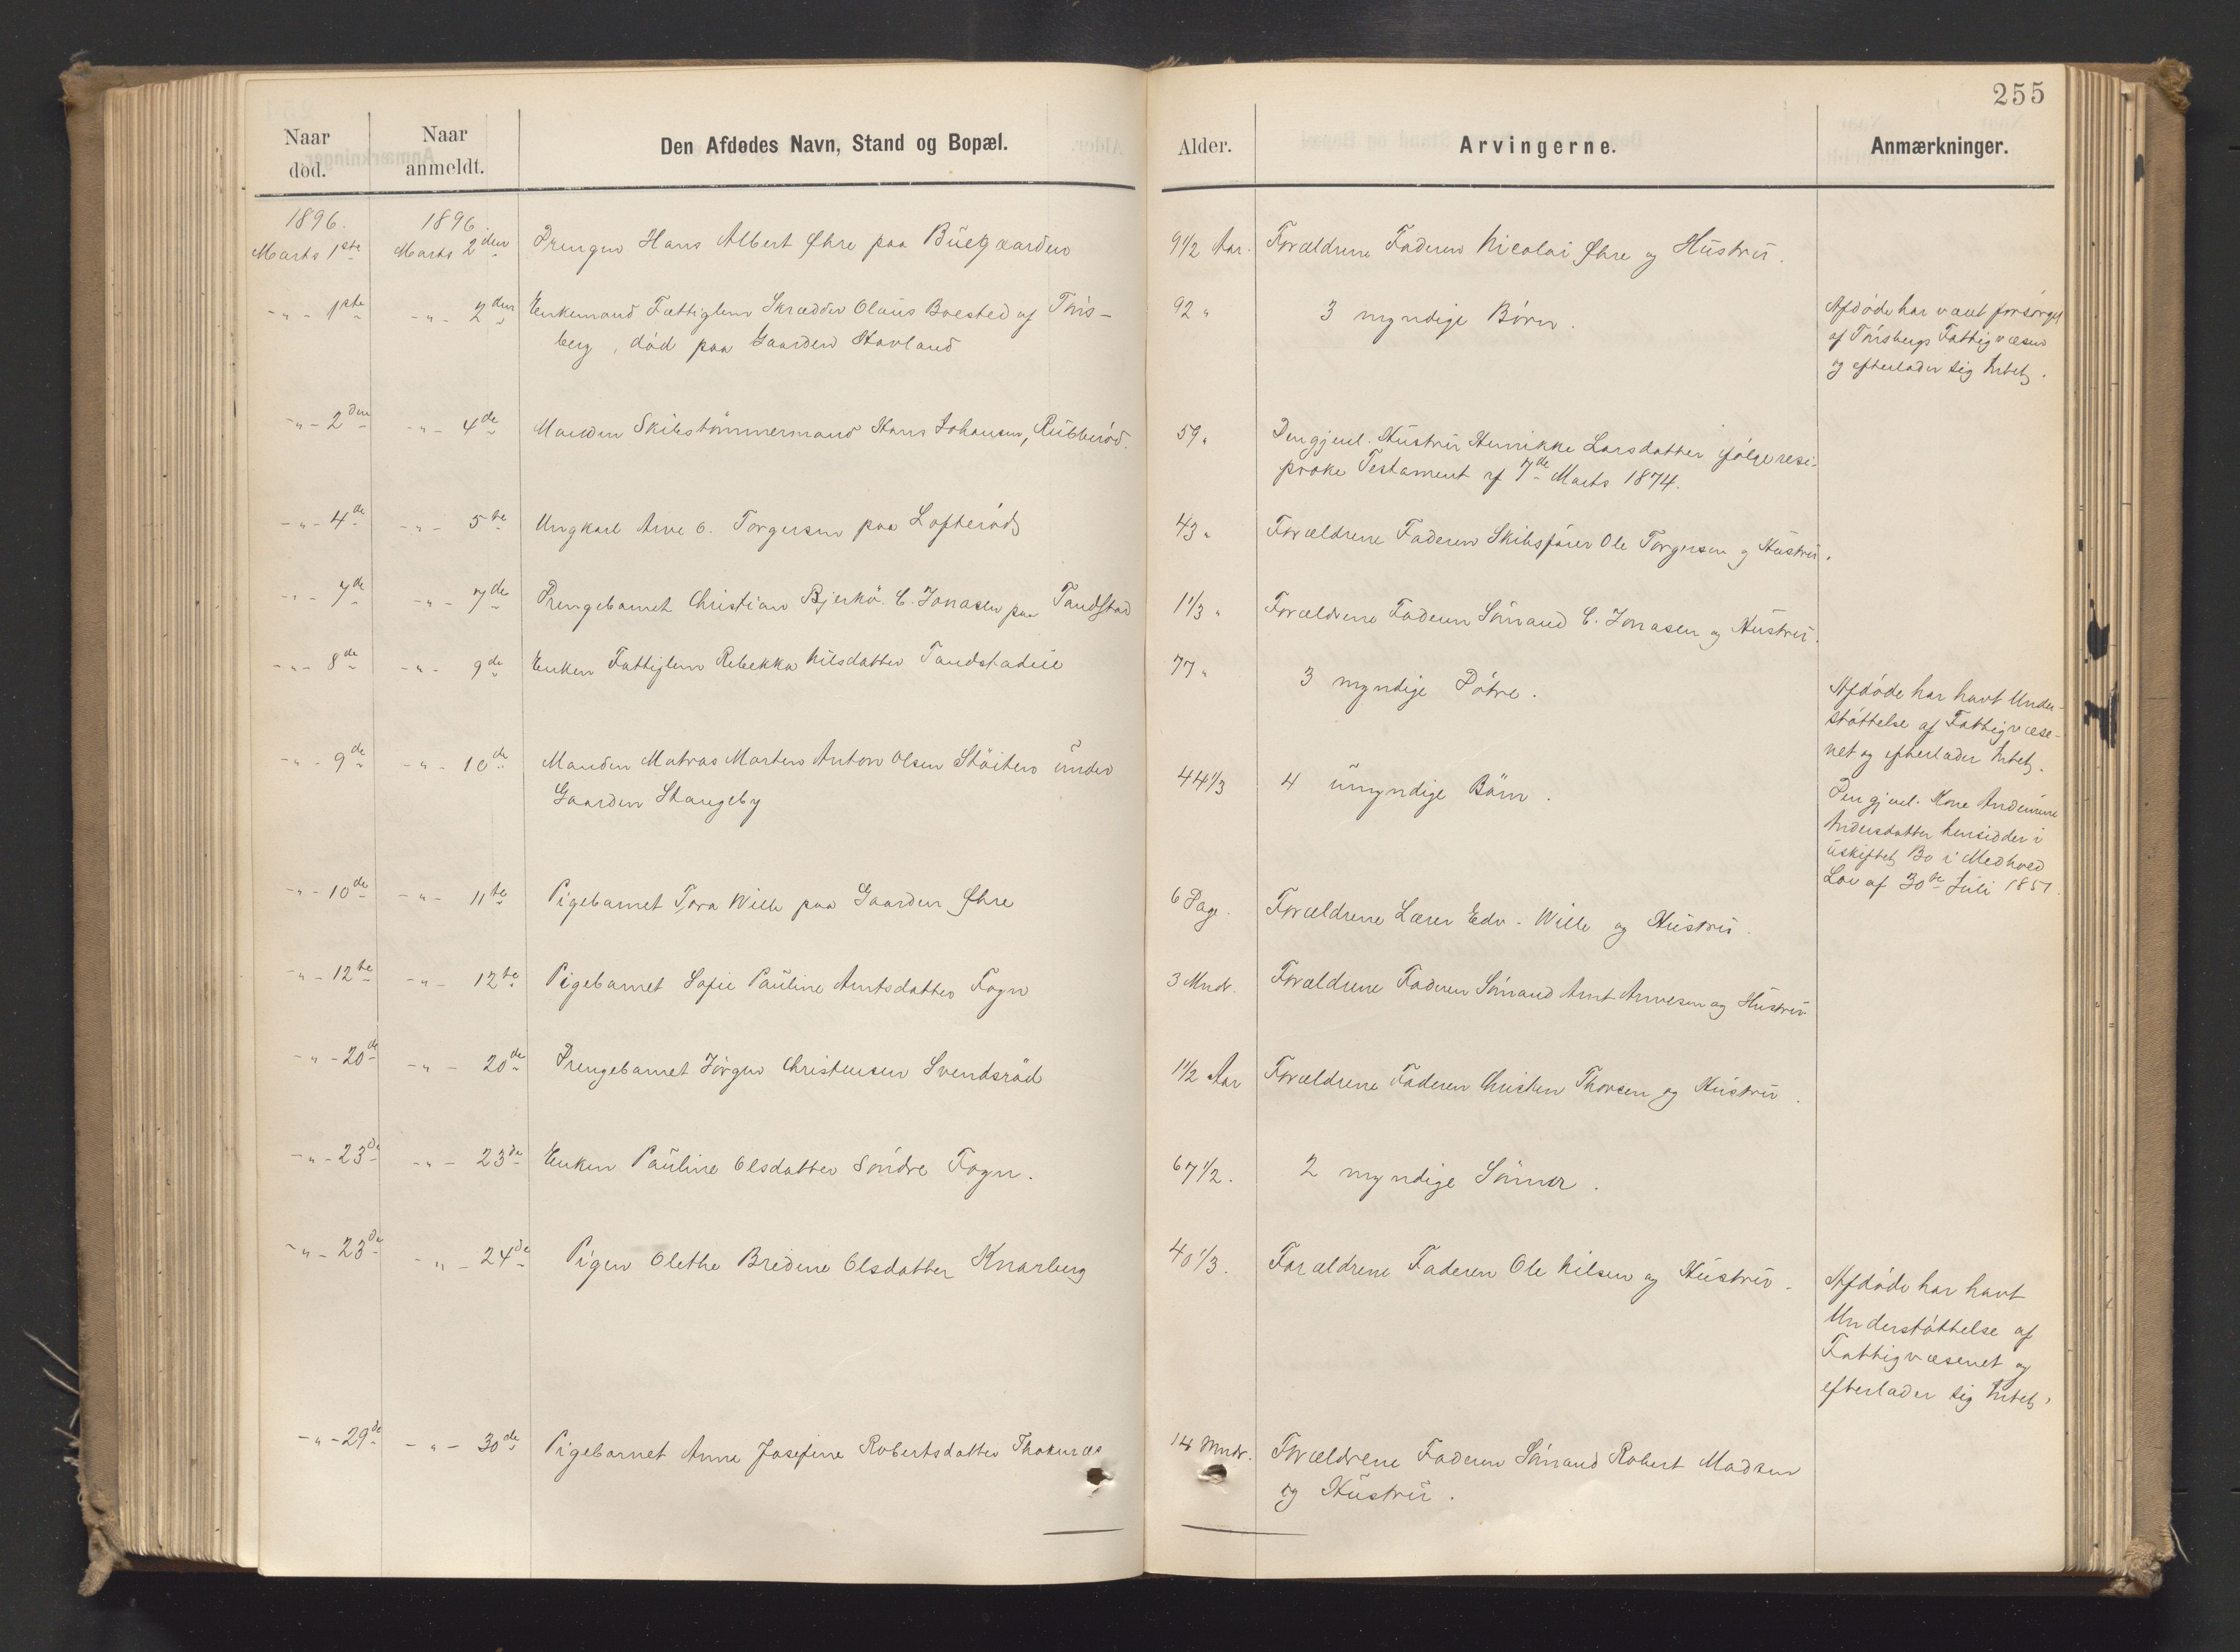 255
Naar død.
Naar anmeldt.
Den Afdødes Navn, Stand og Bopæl.
Alder.
Arvingerne.
Anmærkninger.
1896. Marts 1ste
1896. Marts 2den
Drengen Hans Albert Øhre paa
9 1/2 Aar.
Forældrene Faderen Nicolai Øhre og Hustru.
-"- 1ste
-"- 2den
Enkemand Fattiglem Skrædder Olaus Boested af Töns-
berg, död paa Gaarden Havland
92 "
3 myndige Börn.
Afdöde har været forsörget
af Tönsbergs Fattigvæsen
og efterlader sig Intet.
-"- 2den
-"- 4de
Manden Skibstömmermand Hans Johansen, Rubberöd.
59 "
Den gjenl. Hustru Henrikke Larsdatter ifölge resi-
proke Testament af 7de Marts 1874.
-"- 4de
-"- 5te
Ungkarl Arve O. Torgersen paa Lofteröd
43 "
Forældrene Faderen Skibsförer Ole Torgersen og Hustru.
-"- 7de
-"- 7de
Drengebarnet Christian Bjerkö. C. Jonasen paa Tandstad
1 1/3 "
Forældrene Faderen Sömand C. Jonasen og Hustru.
-"- 8de
-"- 9de
Enken Fattiglem Rebekka Nilsdatter
77 "
3 myndige Dötre.
Afdöde har havt Under-
stöttelse af Fattigvæse-
net og efterlader Intet.
-"- 9de
-"- 10de
Manden Matros Morten Anton Olsen Stöiten under
Gaarden Stangeby
44 1/3
4 umyndige Börn.
Den gjenl. Kone
Andersdatter hensidder i
uskiftet Bo i Medhold
Lov af 30te Juli 1851.
-"- 10de
-"- 11te
Pigebarnet Tora Wille paa Gaarden Øhre
6 Dage.
Forældrene Lærer Edv. Wille og Hustru.
-"- 12te
-"- 12te
Pigebarnet Sofie Pauline Arntsdatter Fogn
3 Mndr.
Forældrene Faderen Sömand Arnt Arnesen og Hustru
-"- 20de
-"- 20de
Drengebarnet Jörgen Christensen Svendsröd
1 1/2 Aar
Forældrene Faderen Christen Thorsen og Hustru.
-"- 23de
-"- 23de
Enken Pauline Olsdatter Söndre Fogn.
67 1/2.
2 myndige Sönner.
-"- 23de
-"- 24de
Pigen Olethe Bredine Olsdatter Knarberg
40 1/3.
Forældrene Faderen Ole Nilsen og Hustru.
Afdöde har havt
Understöttelse af
Fattigvæsenet og
efterlader sig Intet.
-"- 29de
-"- 30de
Pigebarnet Anna Josefine Robertsdatter
14 Mndr.
Forældrene Faderen Sömand Robert Madsen
og Hustru.